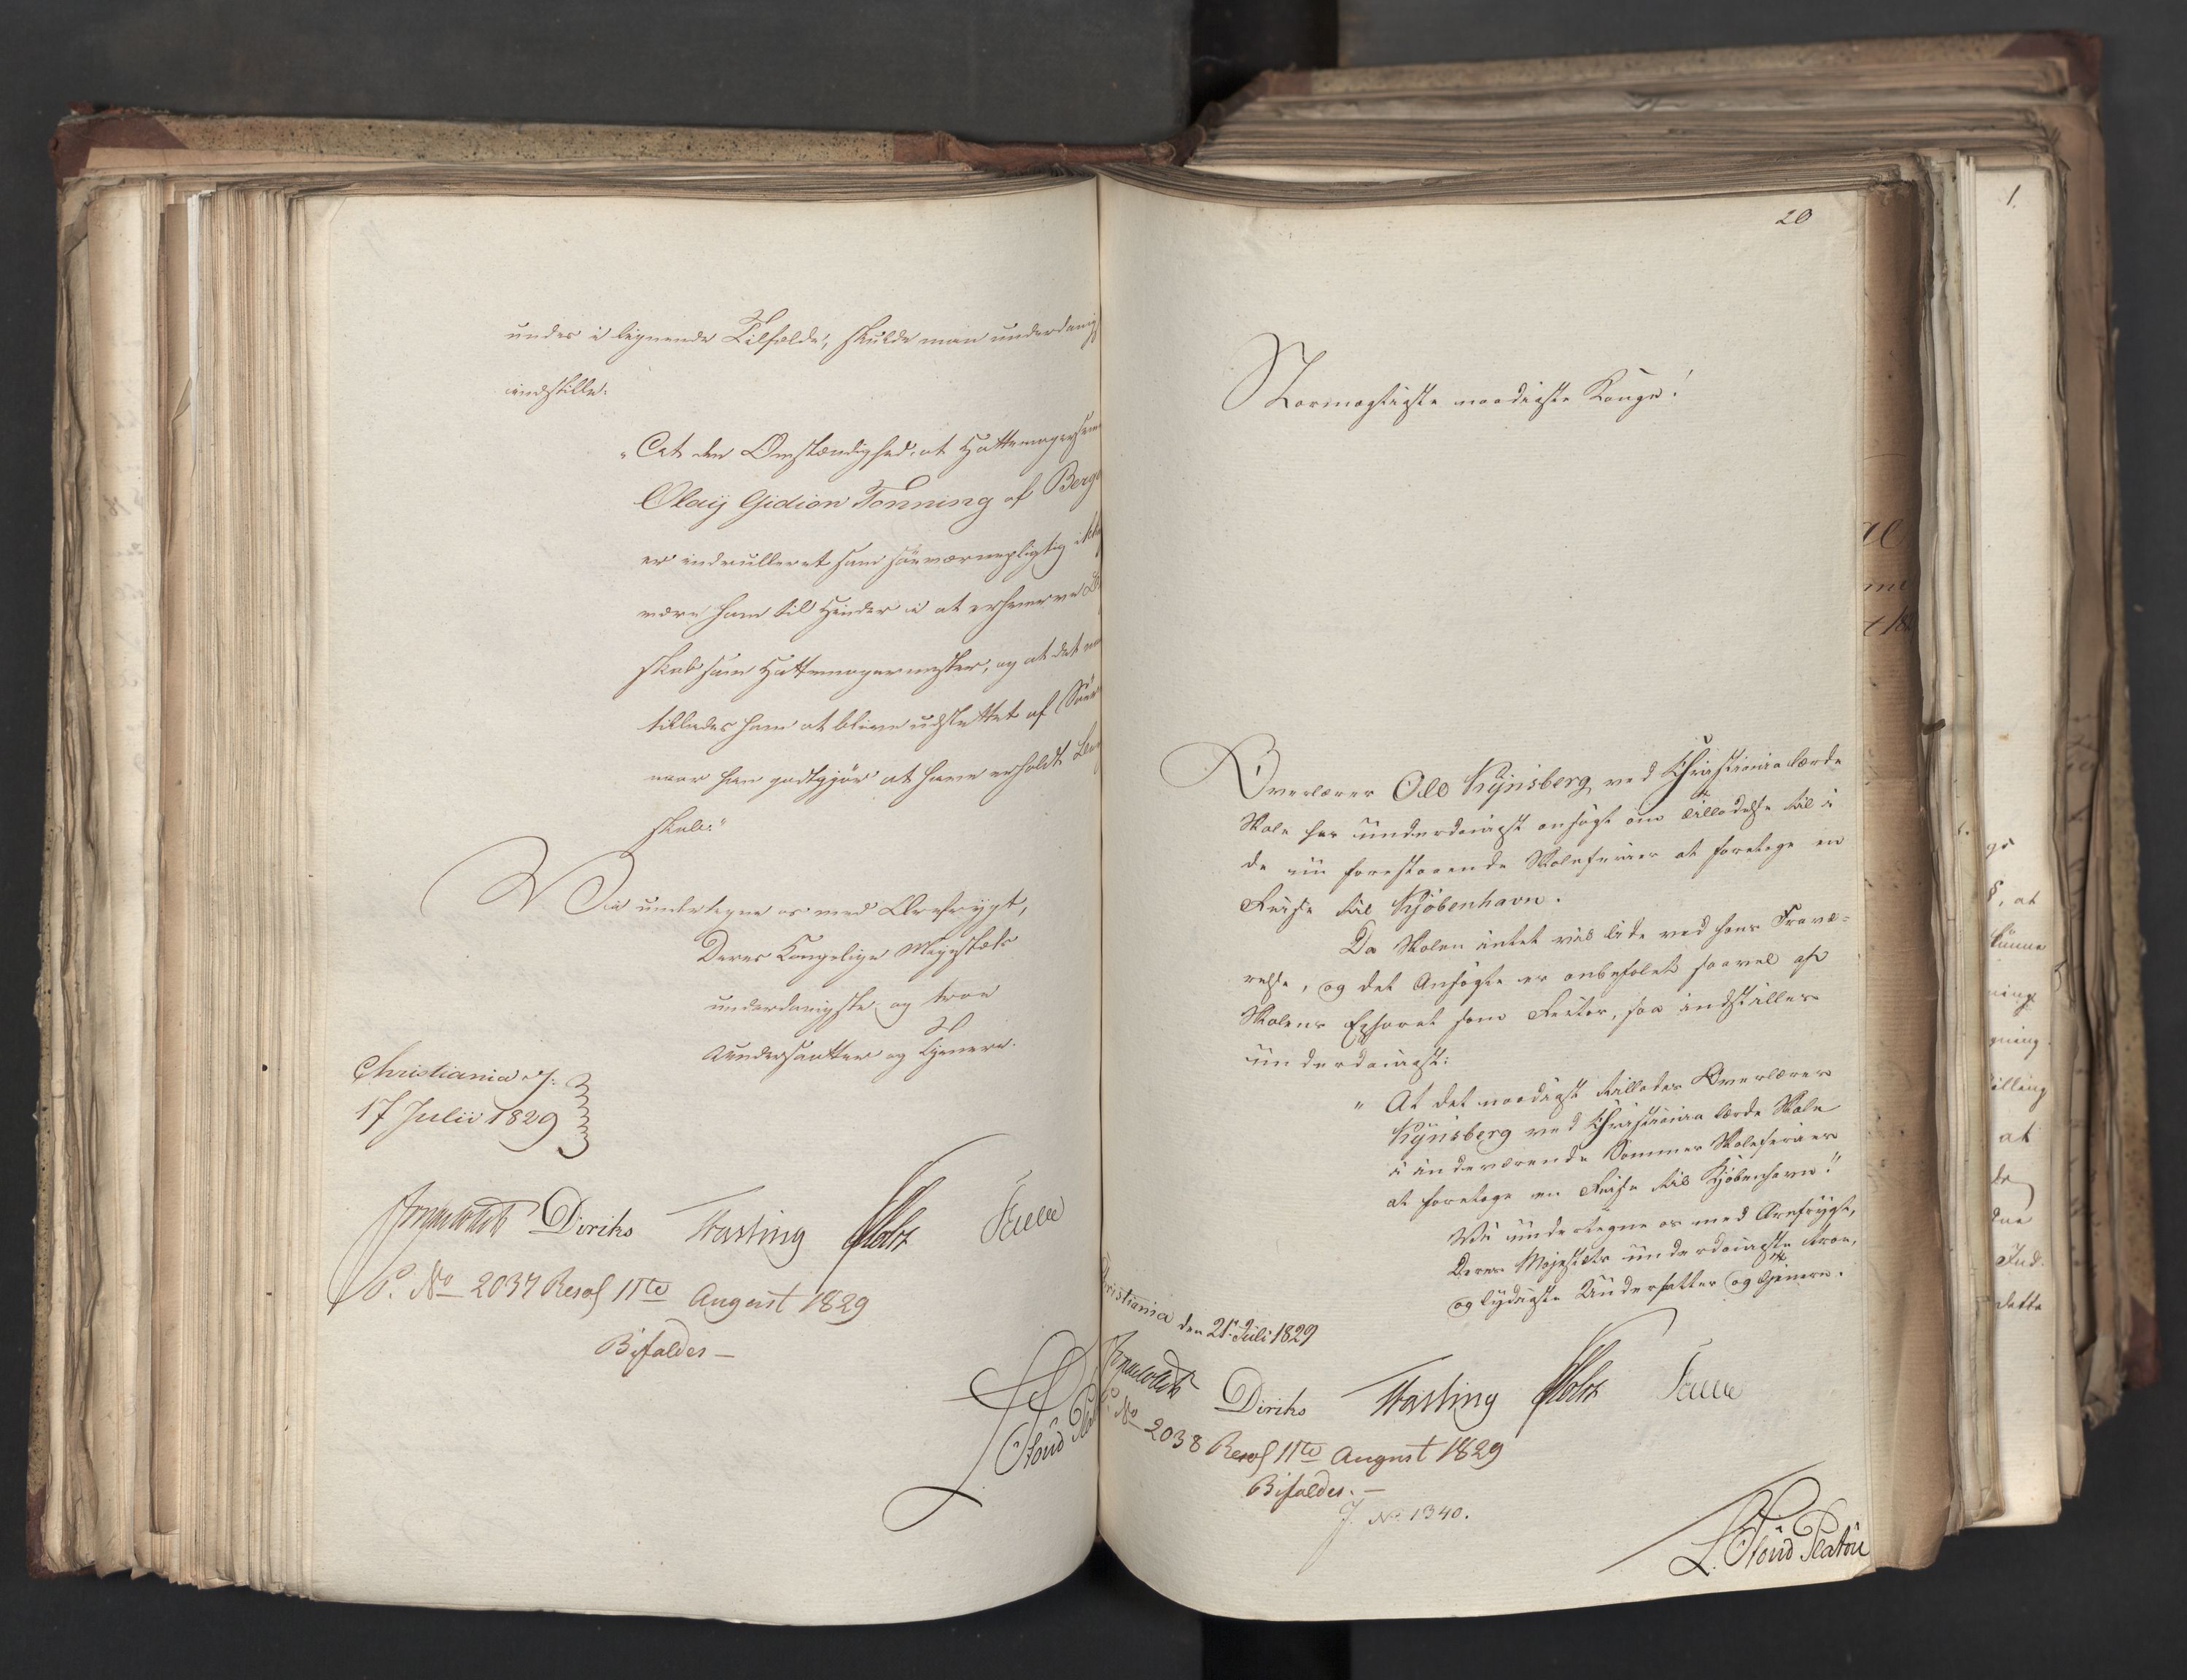 under i lignende Tilfælde, skulde man underdanigst
indstille:
"At den Omstændighed, at Hattemagersvend
Olaij Gidion Tonning af Bergen
er indrulleret som søeværnepligtig ikke
være ham til Hinder i at erhverve
skab som Hattemagermester, og at det
tillades ham at blive udslettet af
naar han godtgjør at have erholdt
skab."
Vi undertegne os med Ærefrygt,
Deres Kongelige Majestæts
underdanigste og troe
Undersaatter og Tjenere.
Christiania d:
17 Julii 1829
Diriks Fasting Holst
P. No 2037 Resol 11te August 1829
Bifaldes —
20
Stormægtigste naadigste Konge!
Overlærer Ole Kynsberg ved Christiania lærde
Skole har underdanigst ansøgt om Tilladelse til i
de nu forestaaende Skoleferier at foretage en
Reise til Kjøbenhavn.
Da Skolen intet vil lide ved hans Fravæ-
relse, og det Ansøgte er anbefalet saavel af
Skolens Ephorat som Rector, saa indstilles
underdanigst:
"At det naadigst tillades Overlærer
Kynsberg ved Christiania lærde Skole
i indeværende Sommer Skoleferier
at foretage en Reise til Kjøbenhavn."
Vi undertegne os med Ærefrygt,
Deres Majestæts underdanigste troe,
og lydigste Undersatter og Tjenere.
Christiania den 21. Juli 1829
Diriks Fasting Holst
P. No 2038 Resol 11te August 1829
Bifaldes. —
J. No 1340.
L. Stoud Platou
1.